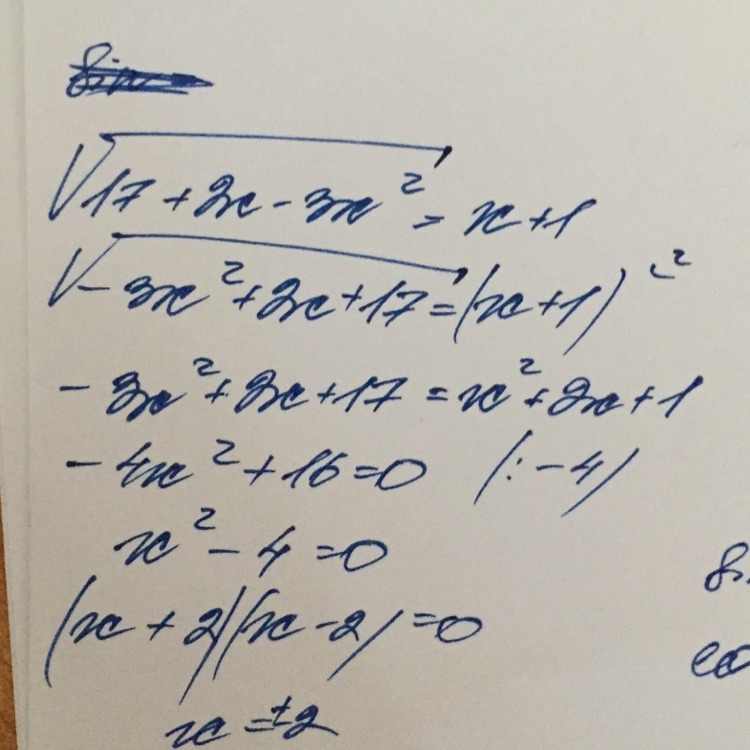 √17 + 2x - 3x² = x + 1
√-3x² + 2x + 17 = (x + 1)²
-3x² + 2x + 17 = x² + 2x + 1
-4x² + 16 = 0 (: -4)
x² - 4 = 0
(x + 2)(x - 2) = 0
x = ±2